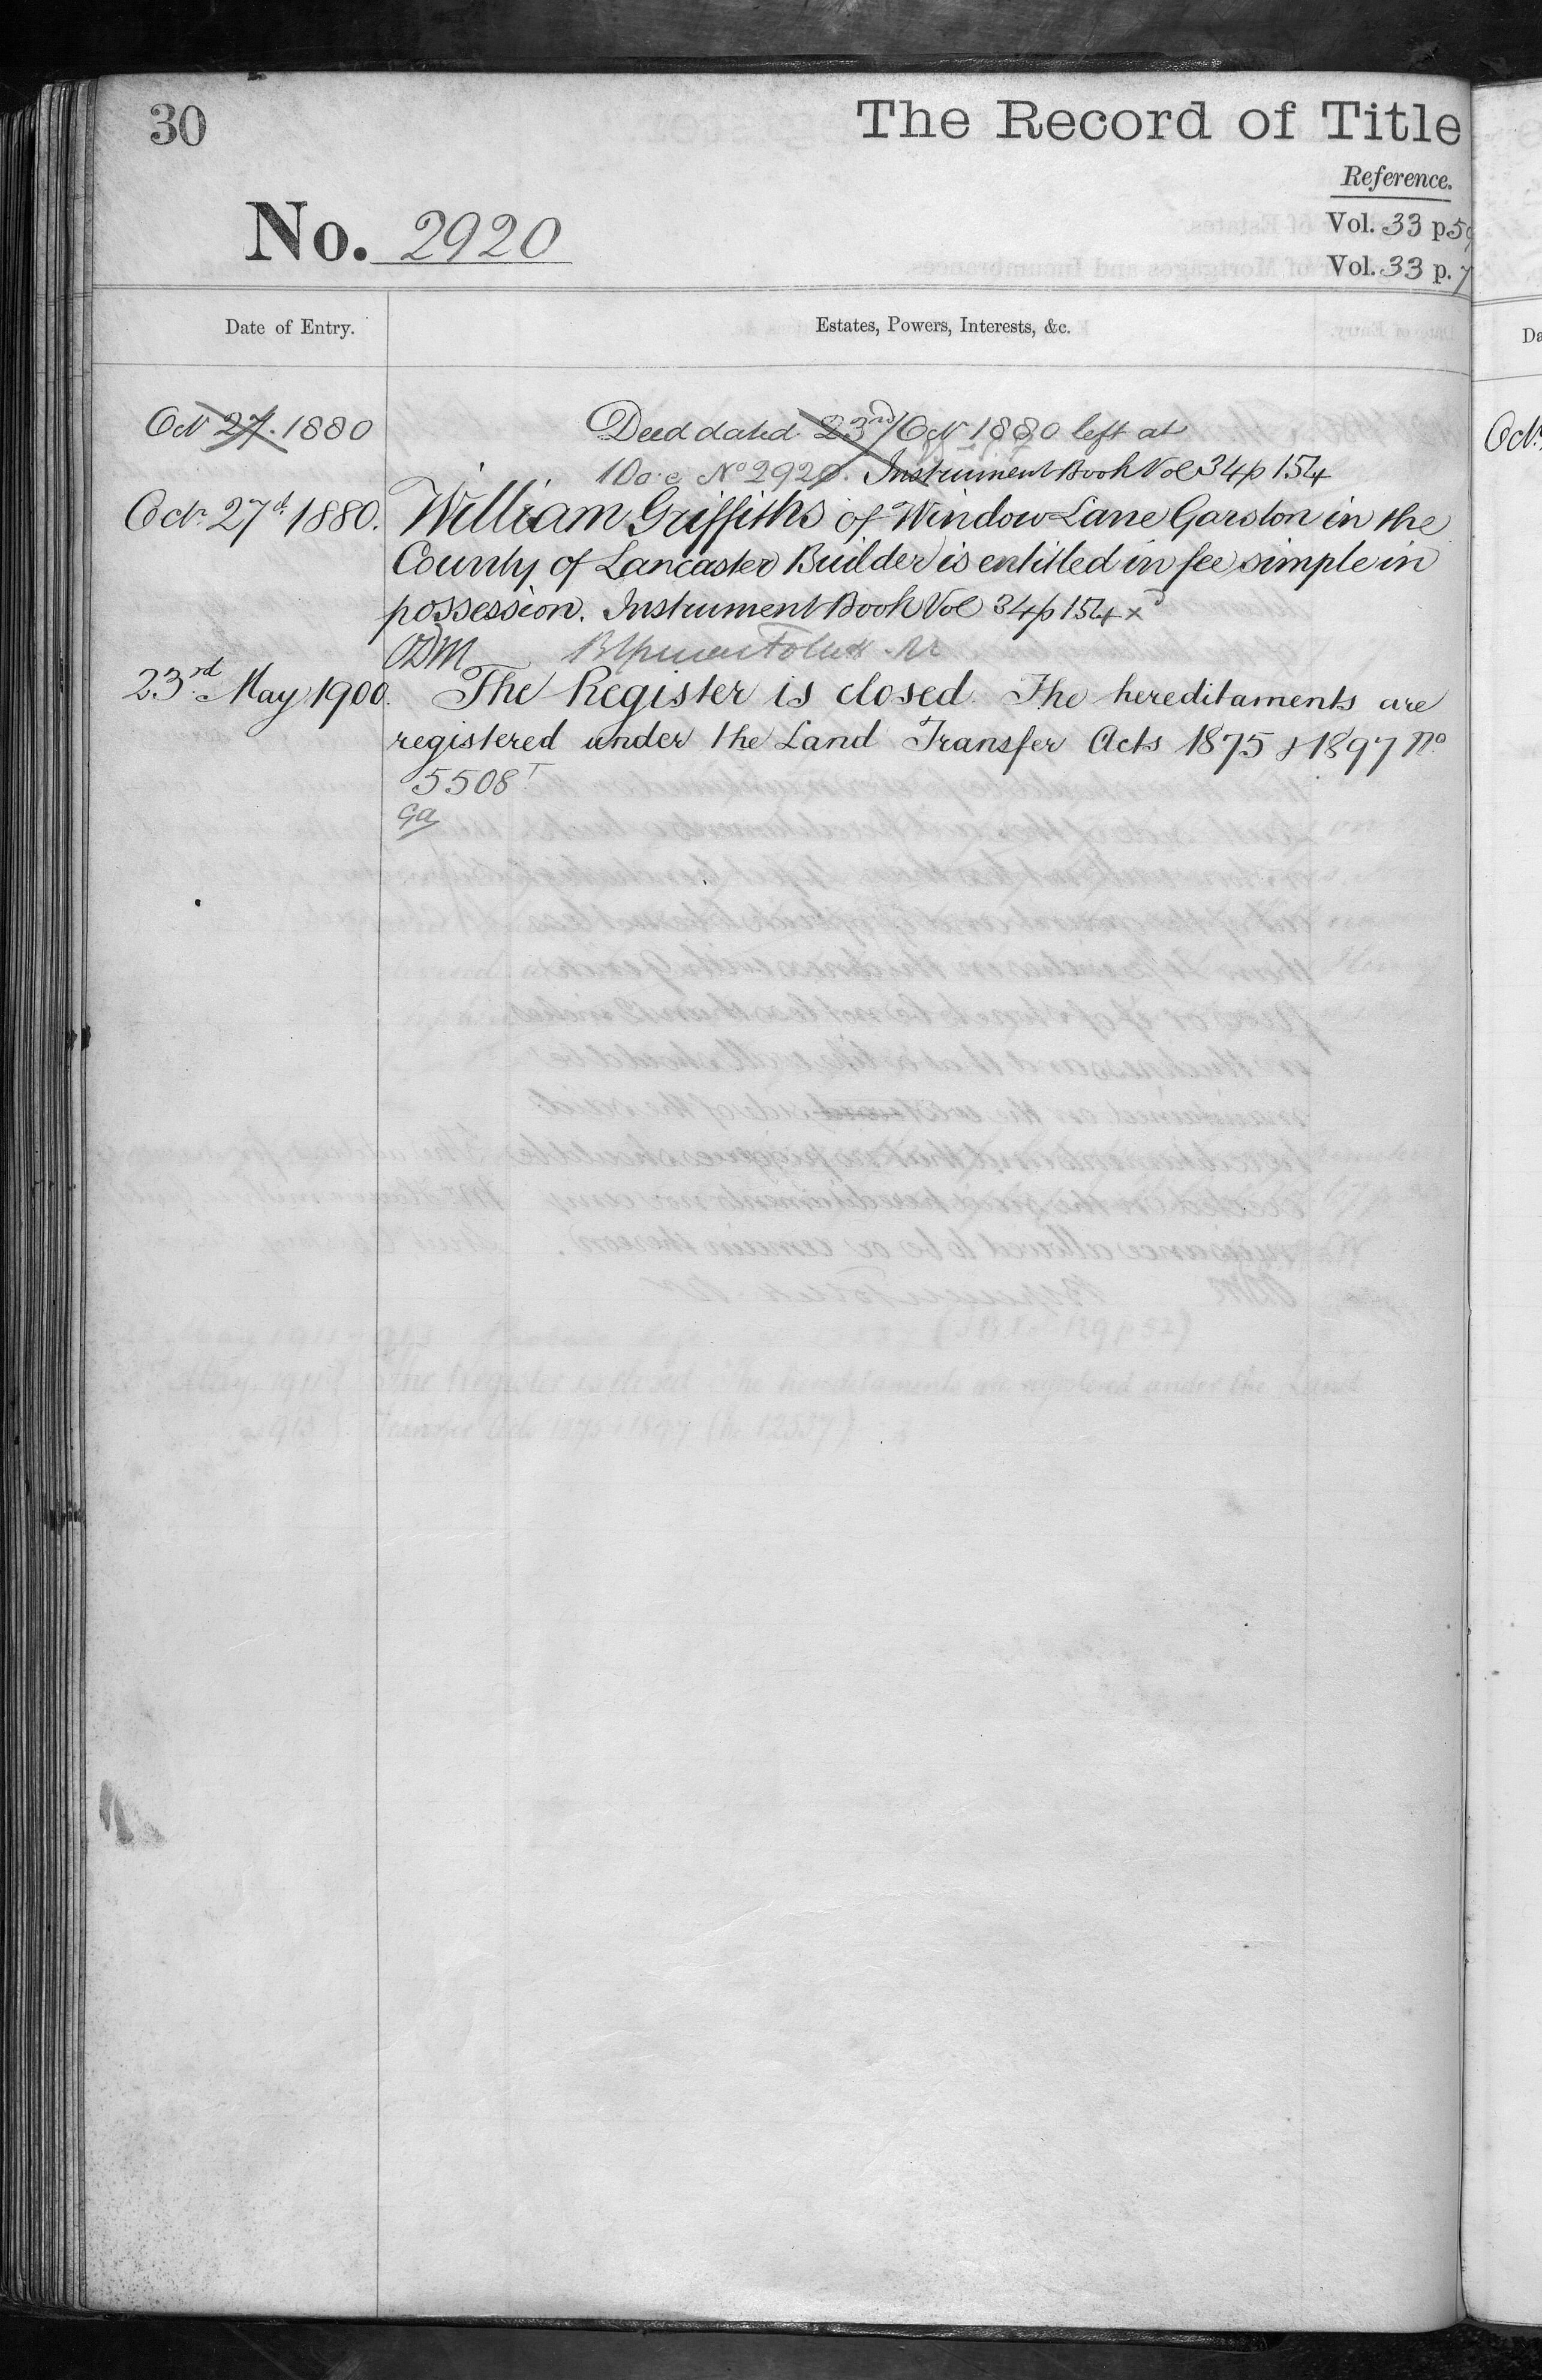 30
The Record of Title
Reference.
No. 2920
Vol. 33 p 5
Vol. 33 p. 7
Date of Entry.
Estates, Powers, Interests, &c.
Oct 27. 1880
Deed dated 23rd Oct 1880 left at
10 a.c. No 2920. Instrument Book Vol 34 p 154
Octr 27th 1880.
William Griffiths of Window Lane Garston in the
County of Lancaster Builder is entitled in fee simple in
possession. Instrument Book Vol 34 p 154 xd
ODM
23rd May 1900.
The Register is closed. The hereditaments are
registered under the Land Transfer Acts 1875 & 1897 No.
5508 T
Ga